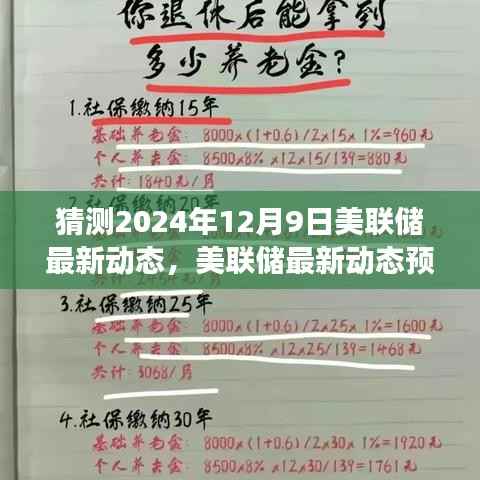 你退休后能拿到
多少养老金?
1.社保缴纳15年
基础养老金: 8000x(1+0.6)/2x15x1%=960元
个人养老金: 8500x8%x12x15/139=880元
共计: 1840元/月
猜测2024年12月9日美联储
最新动态，美联储最新动态预
3.社保缴纳25年
8000x(1+0.6)/2x25x1%=1600元
8500x8%x12x25/139=1468元
共计: 3068/月
4.社保缴纳30年
基础养老金: 8000x(1+0.6)/2x30x1%=1920元
个人养老金: 8500x8%x12x30/139=1761元